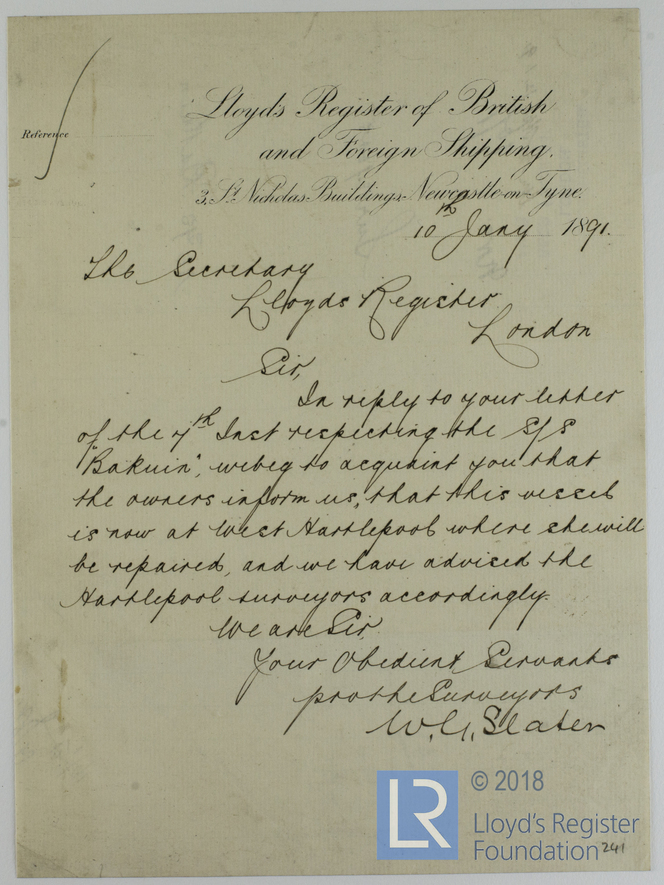 Lloyds Register of British
and Foreign Shipping.
Reference
3, St Nicholas Buildings Newcastle-on-Tyne.
10th Jany 1891.
The Secretary
Lloyds Register
London
Sir,
In reply to your letter
of the 7th Inst respecting the S/S
"Bakuin", we beg to acquaint you that
the owners inform us, that this vessel
is now at West Hartlepool where she will
be repaired, and we have advised the
Hartlepool surveyors accordingly.
We are Sir
Your Obedient Servants
pro the Surveyors
W. G. Slater
LR
© 2018
Lloyd's Register
Foundation
241